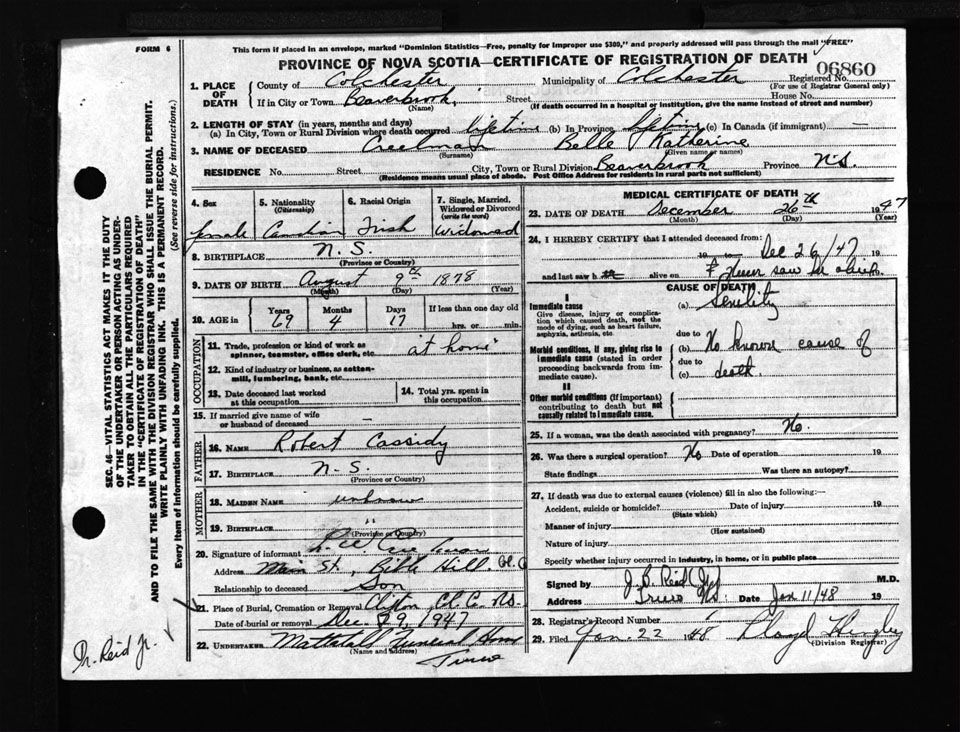 FORM 6
This form if placed in an envelope, marked "Dominion Statistics—Free, penalty for improper use $300," and properly addressed will pass through the mail "FREE"
PROVINCE OF NOVA SCOTIA—CERTIFICATE OF REGISTRATION OF DEATH
06860
1. PLACE OF DEATH
County of Colchester Municipality of Colchester Registered No.
(For use of Registrar General only)
If in City or Town Beaverbrook, Street House No.
(Name) (If death occurred in a hospital or institution, give the name instead of street and number)
2. LENGTH OF STAY (in years, months and days)
(a) In City, Town or Rural Division where death occurred lifetime (b) In Province lifetime (c) In Canada (if immigrant) —
3. NAME OF DECEASED Creelman Belle Katherine
(Surname) (Given name or names)
RESIDENCE No. Street City, Town or Rural Division Beaverbrook Province N.S.
(Residence means usual place of abode. Post Office Address for residents in rural parts not sufficient)
4. Sex female
5. Nationality (Citizenship) Canadian
6. Racial Origin Irish
7. Single, Married, Widowed or Divorced (write the word) Widowed
8. BIRTHPLACE N.S.
(Province or Country)
9. DATE OF BIRTH August 9th 1878
(Month) (Day) (Year)
10. AGE in Years 69 Months 4 Days 17 If less than one day old hrs. or min.
OCCUPATION
11. Trade, profession or kind of work as spinner, teamster, office clerk, etc. at home
12. Kind of industry or business, as cotton-mill, lumbering, bank, etc.
13. Date deceased last worked at this occupation
14. Total yrs. spent in this occupation
15. If married give name of wife or husband of deceased —
FATHER
16. NAME Robert Cassidy
17. BIRTHPLACE N.S.
(Province or Country)
MOTHER
18. MAIDEN NAME unknown
19. BIRTHPLACE "
(Province or Country)
20. Signature of informant
Address Main St., Bible Hill. Col. C
Relationship to deceased Son
21. Place of Burial, Cremation or Removal Clifton, Col. C. N.S.
Date of burial or removal Dec. 29, 1947
22. UNDERTAKER Mattatall Funeral Home
(Name and address) Truro
MEDICAL CERTIFICATE OF DEATH
23. DATE OF DEATH December 26th 1947
(Month) (Day) (Year)
24. I HEREBY CERTIFY that I attended deceased from:
19 to Dec 26/47 19
and last saw h alive on I never saw her alive
CAUSE OF DEATH
I
Immediate cause
Give disease, injury or complication which caused death, not the mode of dying, such as heart failure, asphyxia, asthenia, etc.
(a) Senility
due to
Morbid conditions, if any, giving rise to immediate cause (stated in order proceeding backwards from immediate cause).
(b) No known cause of
due to
(c) death.
II
Other morbid conditions (if important) contributing to death but not causally related to immediate cause.
25. If a woman, was the death associated with pregnancy? No.
26. Was there a surgical operation? No Date of operation 19
State findings Was there an autopsy?
27. If death was due to external causes (violence) fill in also the following:—
Accident, suicide or homicide? Date of injury 19
(State which)
Manner of injury
(How sustained)
Nature of injury
Specify whether injury occurred in industry, in home, or in public place
Signed by J. B. Reid Jr. M.D.
Address Truro N.S. Date Jan 11/48 19
28. Registrar's Record Number 1
29. Filed Jan. 22 1948 Lloyd
(Division Registrar)
SEC. 46—VITAL STATISTICS ACT MAKES IT THE DUTY
OF THE UNDERTAKER OR PERSON ACTING AS UNDER-
TAKER TO OBTAIN ALL THE PARTICULARS REQUIRED
IN THE "CERTIFICATE OF REGISTRATION OF DEATH"
AND TO FILE THE SAME WITH THE DIVISION REGISTRAR WHO SHALL ISSUE THE BURIAL PERMIT.
WRITE PLAINLY WITH UNFADING INK. THIS IS A PERMANENT RECORD.
Every item of information should be carefully supplied. (See reverse side for instructions.)
Dr. Reid Jr.